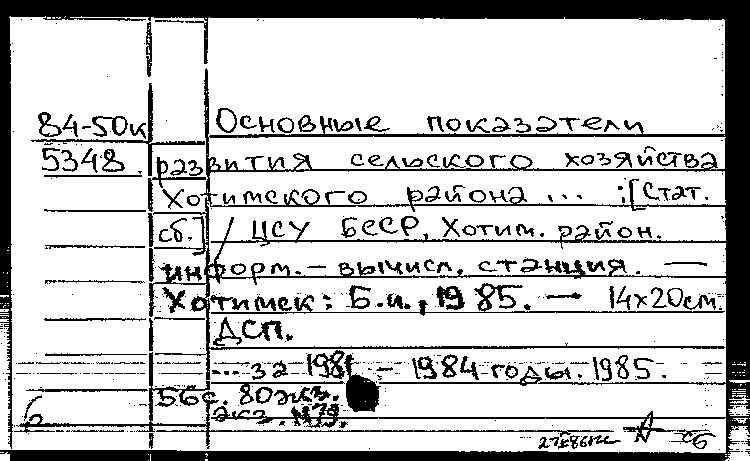 84-50к Основные показатели
5348. развития сельского хозяйства
Хотимского района ... :[Стат.
сб.] / ЦСУ БССР, Хотим. район.
информ.-вычисл. станция. —
Хотимск: Б.и., 1985. — 14х20см.
ДСП.
... за 1981 - 1984 годы. 1985.
56с. 80экз.
экз. №79.
сб